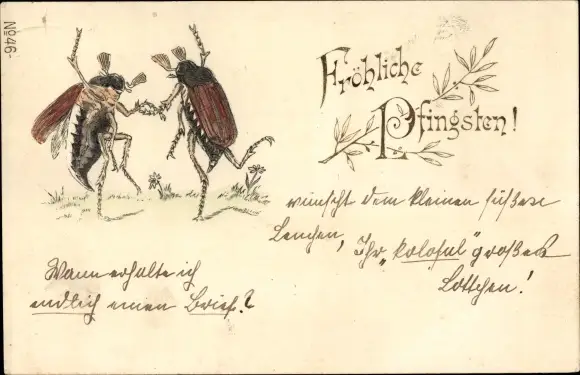 No 46-
Fröhliche
Pfingsten!
wünscht dem kleinen süßen
Lenchen,
Ihr „kolosal" großes
Lottchen!
Wann erhalte ich
endlich einen Brief?